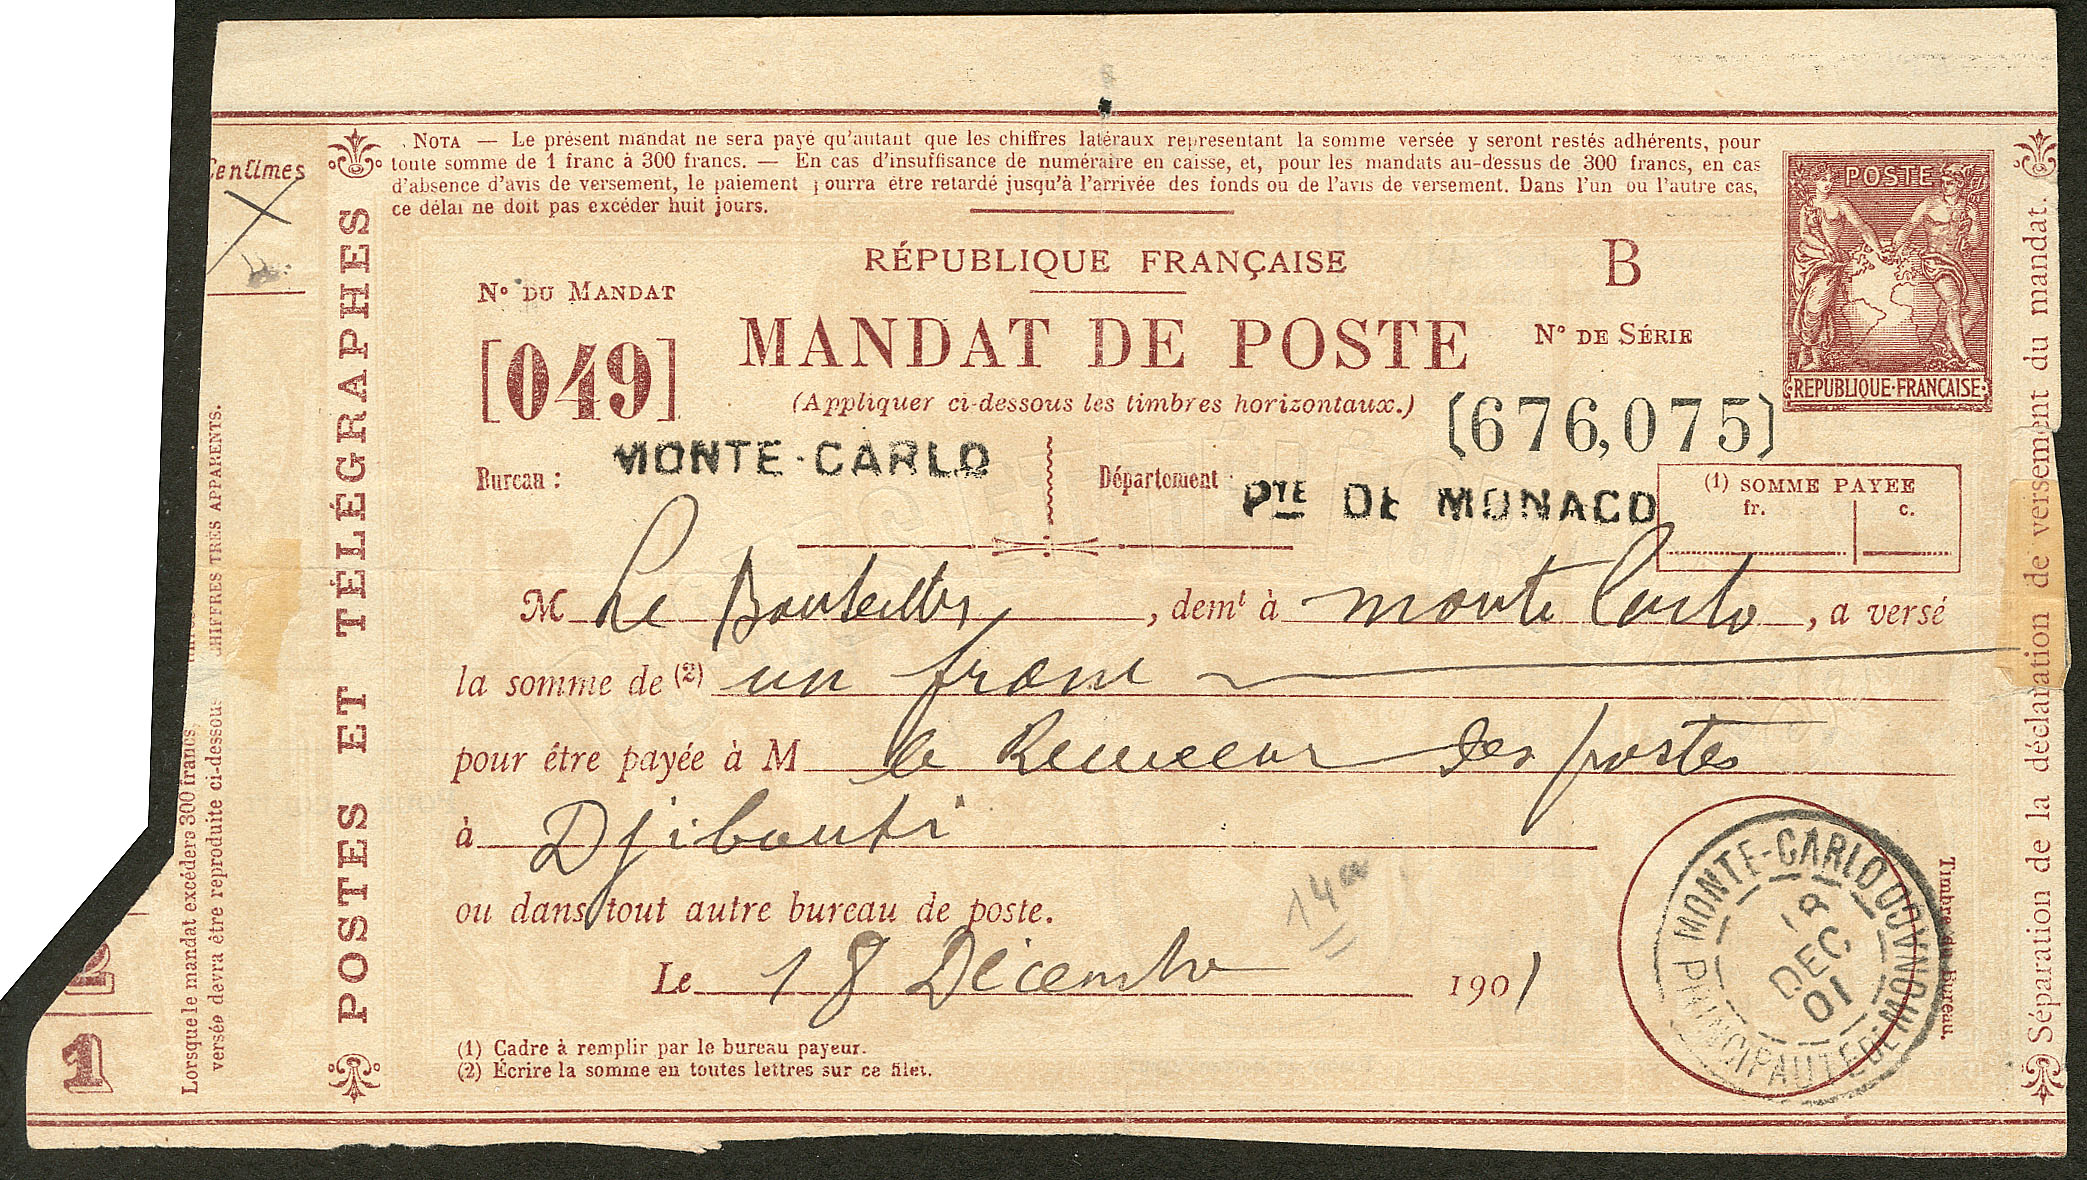 NOTA — Le présent mandat ne sera payé qu'autant que les chiffres latéraux representant la somme versée y seront restés adhérents, pour
toute somme de 1 franc à 300 francs. — En cas d'insuffisance de numéraire en caisse, et, pour les mandats au-dessus de 300 francs, en cas
d'absence d'avis de versement, le paiement pourra être retardé jusqu'à l'arrivée des fonds ou de l'avis de versement. Dans l'un ou l'autre cas,
ce délai ne doit pas excéder huit jours.
Centimes
POSTE
REPUBLIQUE·FRANÇAISE
RÉPUBLIQUE FRANÇAISE
B
N° DU MANDAT
MANDAT DE POSTE
N° DE SÉRIE
[049]
(Appliquer ci-dessous les timbres horizontaux.)
(676,075)
Bureau : MONTE-CARLO
Département PTE DE MONACO
(1) SOMME PAYEE
fr. c.
M Le Bouteiller, demt à Monte Carlo, a versé
la somme de (2) un franc
pour être payée à M le Receveur des postes
à Djibouti
ou dans tout autre bureau de poste.
Le 18 Décembre 1901
(1) Cadre à remplir par le bureau payeur.
(2) Écrire la somme en toutes lettres sur ce filet.
MONTE-CARLO
PRINCIPAUTE DE MONACO
18
DEC
01
Timbre du Bureau.
Séparation de la déclaration de versement du mandat.
POSTES ET TÉLÉGRAPHES
Lorsque le mandat excédera 300 francs
versée devra être reproduite ci-dessous
CHIFFRES TRÈS APPARENTS.
2
1